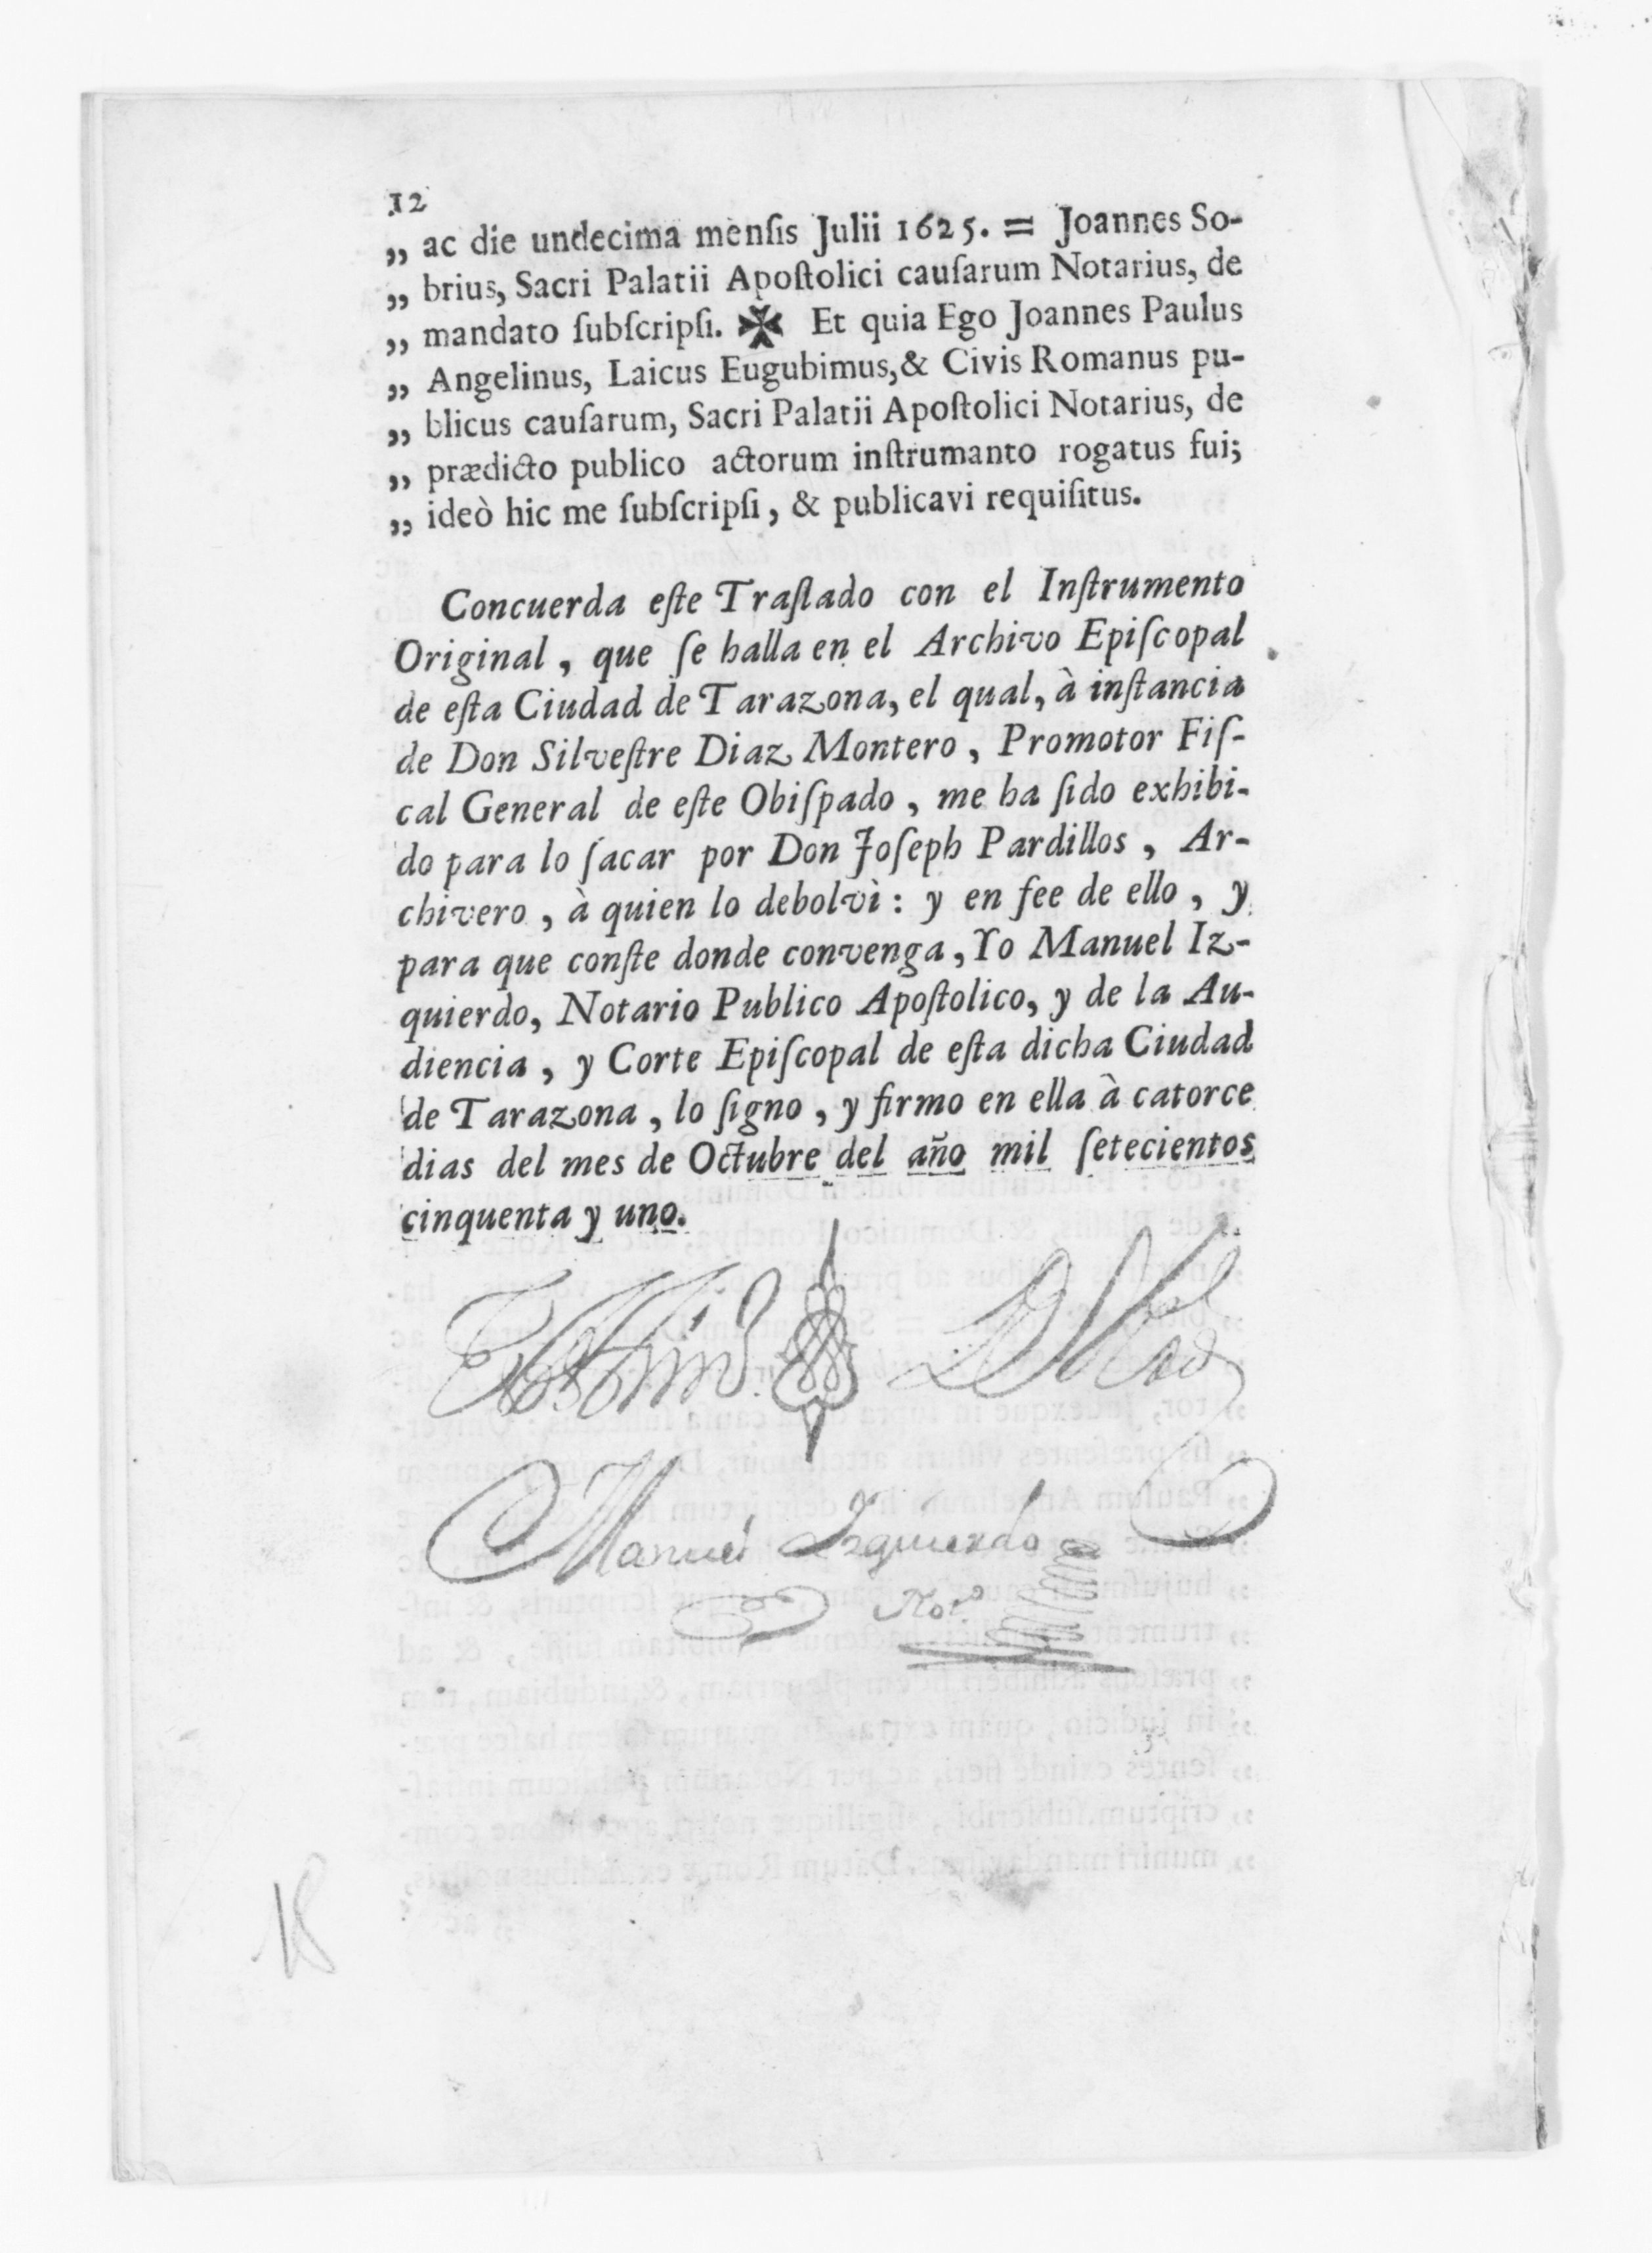 12
„ ac die undecima menſis Julii 1625. = Joannes So-
„ brius, Sacri Palatii Apoſtolici cauſarum Notarius, de
„ mandato ſubſcripſi. ✠ Et quia Ego Joannes Paulus
„ Angelinus, Laicus Eugubimus,& Civis Romanus pu-
„ blicus cauſarum, Sacri Palatii Apoſtolici Notarius, de
„ prædicto publico actorum inſtrumanto rogatus fui;
„ ideò hic me ſubſcripſi, & publicavi requiſitus.
Concuerda eſte Traſlado con el Inſtrumento
Original, que ſe halla en el Archivo Epiſcopal
de eſta Ciudad de Tarazona, el qual, à inſtancia
de Don Silveſtre Diaz Montero, Promotor Fiſ-
cal General de eſte Obiſpado, me ha ſido exhibi-
do para lo ſacar por Don Joſeph Pardillos, Ar-
chivero, à quien lo debolvì: y en fee de ello, y
para que conſte donde convenga, Yo Manuel Iz-
quierdo, Notario Publico Apoſtolico, y de la Au-
diencia, y Corte Epiſcopal de eſta dicha Ciudad
de Tarazona, lo ſigno, y firmo en ella à catorce
dias del mes de Octubre del año mil ſetecientos
cinquenta y uno.
Manuel Izquierdo
Not.º
18